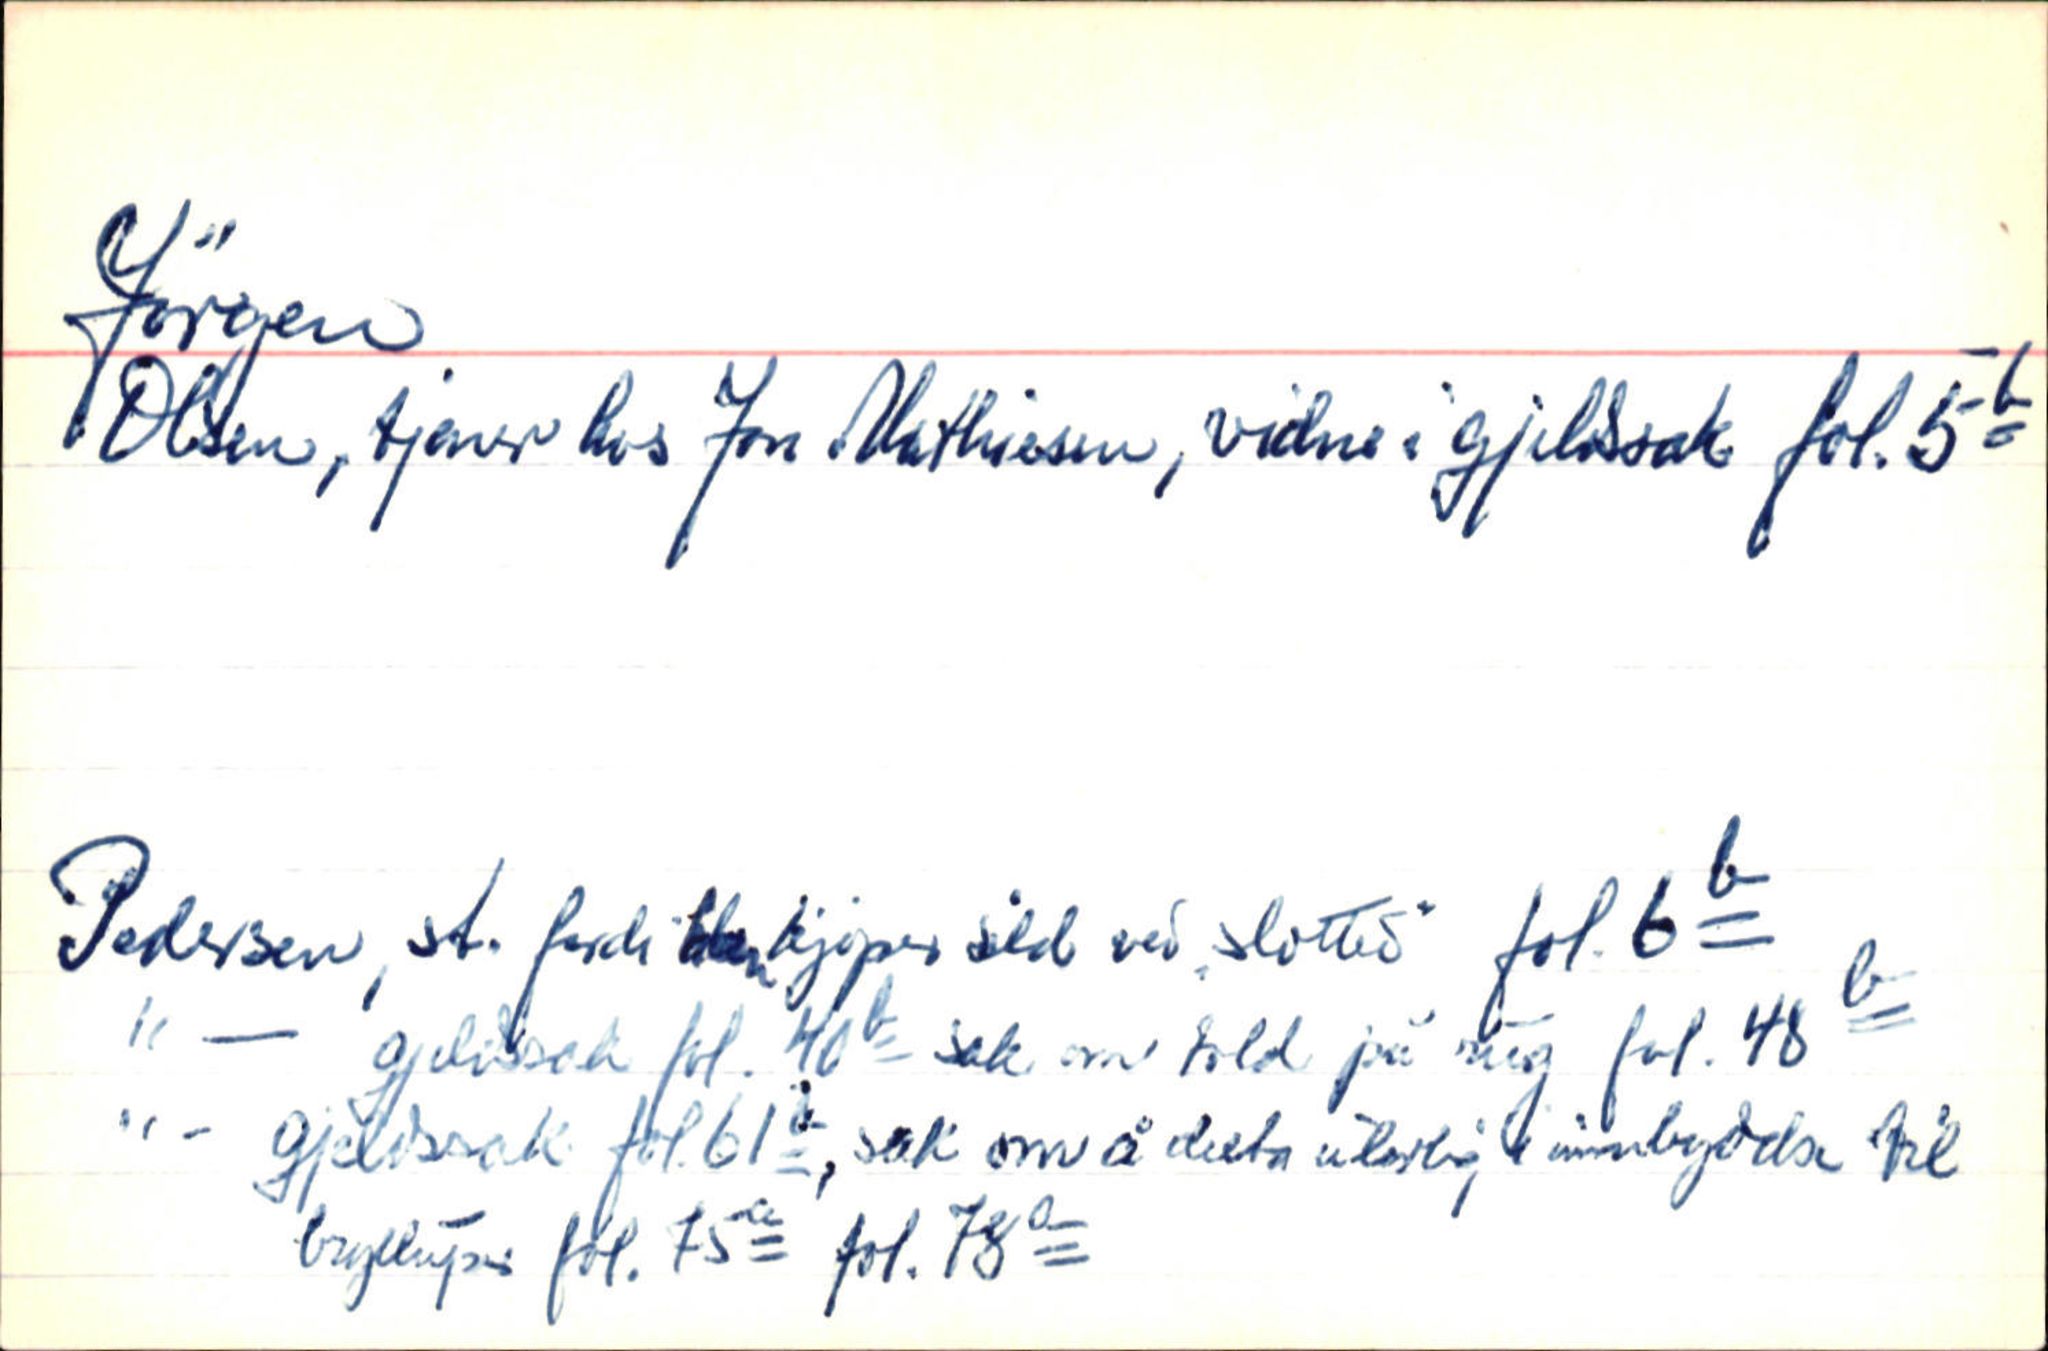 Jörgen
Olsen, tjener hos Jon Mathiesen, vidne i gjeldssak fol. 5b
Pedersen, st. kjøper sild ved "slottet" fol. 6b
"— gjeldssak fol. 40b sak om told på rug fol. 48b
"- gjeldssak fol. 61b, sak om å delta ulovlig i innbydelse til
bryllup fol. 75a fol. 78a